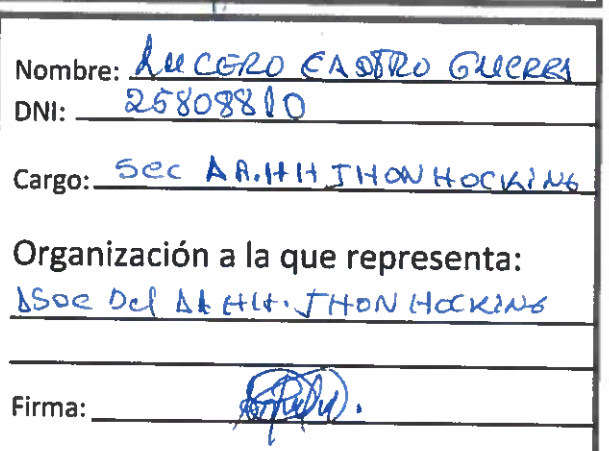 Nombre: LUCERO CASTRO GUERRA
DNI: 25808810
Cargo: Sec AA.HH JHON HOCKING
Organización a la que representa:
ASOC Del AA HH. JHON HOCKING
Firma: